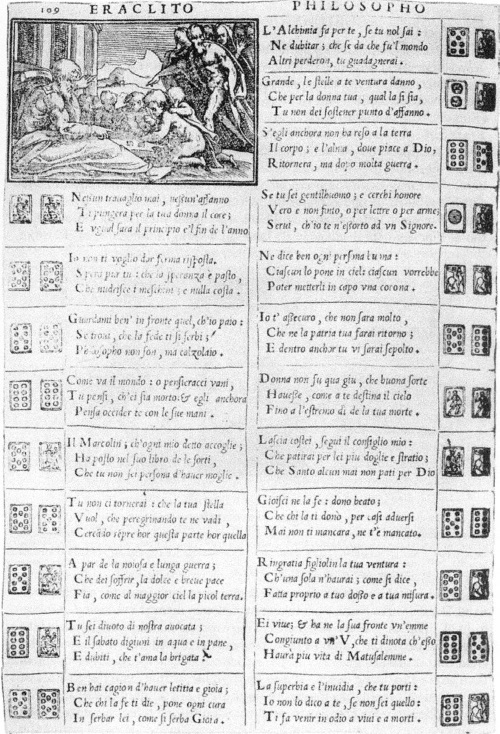 109 ERACLITO
PHILOSOPHO
Nessun travaglio mai, nessun'affanno
Ti pungera per la tua donna il core;
E ugual sara il principio e'l fin de l'anno
Io non ti voglio dar ferma risposta.
Spera pur tu: che la speranza è pasto,
Che nudrisce i meschini; e nulla costa.
Guardami ben' in fronte quel, ch'io paio:
Se trovi, che la fede ti si serbi;
Philosopho non son, ma calzolaio.
Come va il mondo: o pensieracci vani,
Tu pensi, ch'ei sia morto: & egli anchora
Pensa occider te con le sue mani.
Il Marcolini; ch'ogni mio detto accoglie;
Ha posto nel suo libro de le sorti,
Che tu non sei persona d'haver moglie.
Tu non ci tornerai: che la tua stella
Vuol, che peregrinando te ne vadi,
Cercãdo sẽpre hor questa parte hor quella
A par de la noiosa e lunga guerra;
Che dei soffrir, la dolce e breve pace
Fia, come al maggior ciel la picol terra.
Tu sei divoto di nostra avocata;
E il sabato digiuni in aqua e in pane,
E dubiti, che t'ama la brigata?
Ben hai cagion d'haver letitia e gioia;
Che chi la fe ti die, pone ogni cura
In serbar lei, come si serba Gioia.
L'Alchimia fa per te, se tu nol sai:
Ne dubitar; che se da che fu'l mondo
Altri perderon, tu guadagnerai.
Grande, le stelle a te ventura danno,
Che per la donna tua, qual la si sia,
Tu non dei sostener punto d'affanno.
S'egli anchora non ha reso a la terra
Il corpo; e l'alma, dove piace a Dio,
Ritornera, ma dopo molta guerra.
Se tu sei gentilhuomo; e cerchi honore
Vero e non finto, o per lettre o per arme;
Servi, ch'io te n'esforto ad vn Signore.
Ne dice ben ogni persona
Ciascun lo pone in ciel: ciascun vorrebbe
Poter metterli in capo vna corona.
Io t'assecuro, che non sara molto,
Che ne la patria tua farai ritorno;
E dentro anchor tu vi sarai sepolto.
Donna non fu qua giu, che buona sorte
Havesse, come a te destina il cielo
Fino a l'estremo di de la tua morte.
Lascia costei, segui il consiglio mio:
Che patirai per lei piu doglie e stratio;
Che Santo alcun mai non pati per Dio
Gioisci ne la fe: dono beato;
Che chi la ti donò, per casi adversi
Mai non ti mancara, ne t'è mancato.
Ringratia figliolin la tua ventura:
Ch'una sola n'haurai; come si dice,
Fatta proprio a tuo dosso e a tua misura.
Ei vive; & ha ne la sua fronte vn'emme
Congiunto a vn'V, che ti dinota ch'esso
Haurà piu vita di Matusalemme.
La superbia e l'invidia, che tu porti:
Io non lo dico a te, se non sei quello:
Ti fa venir in odio a vivi e a morti.